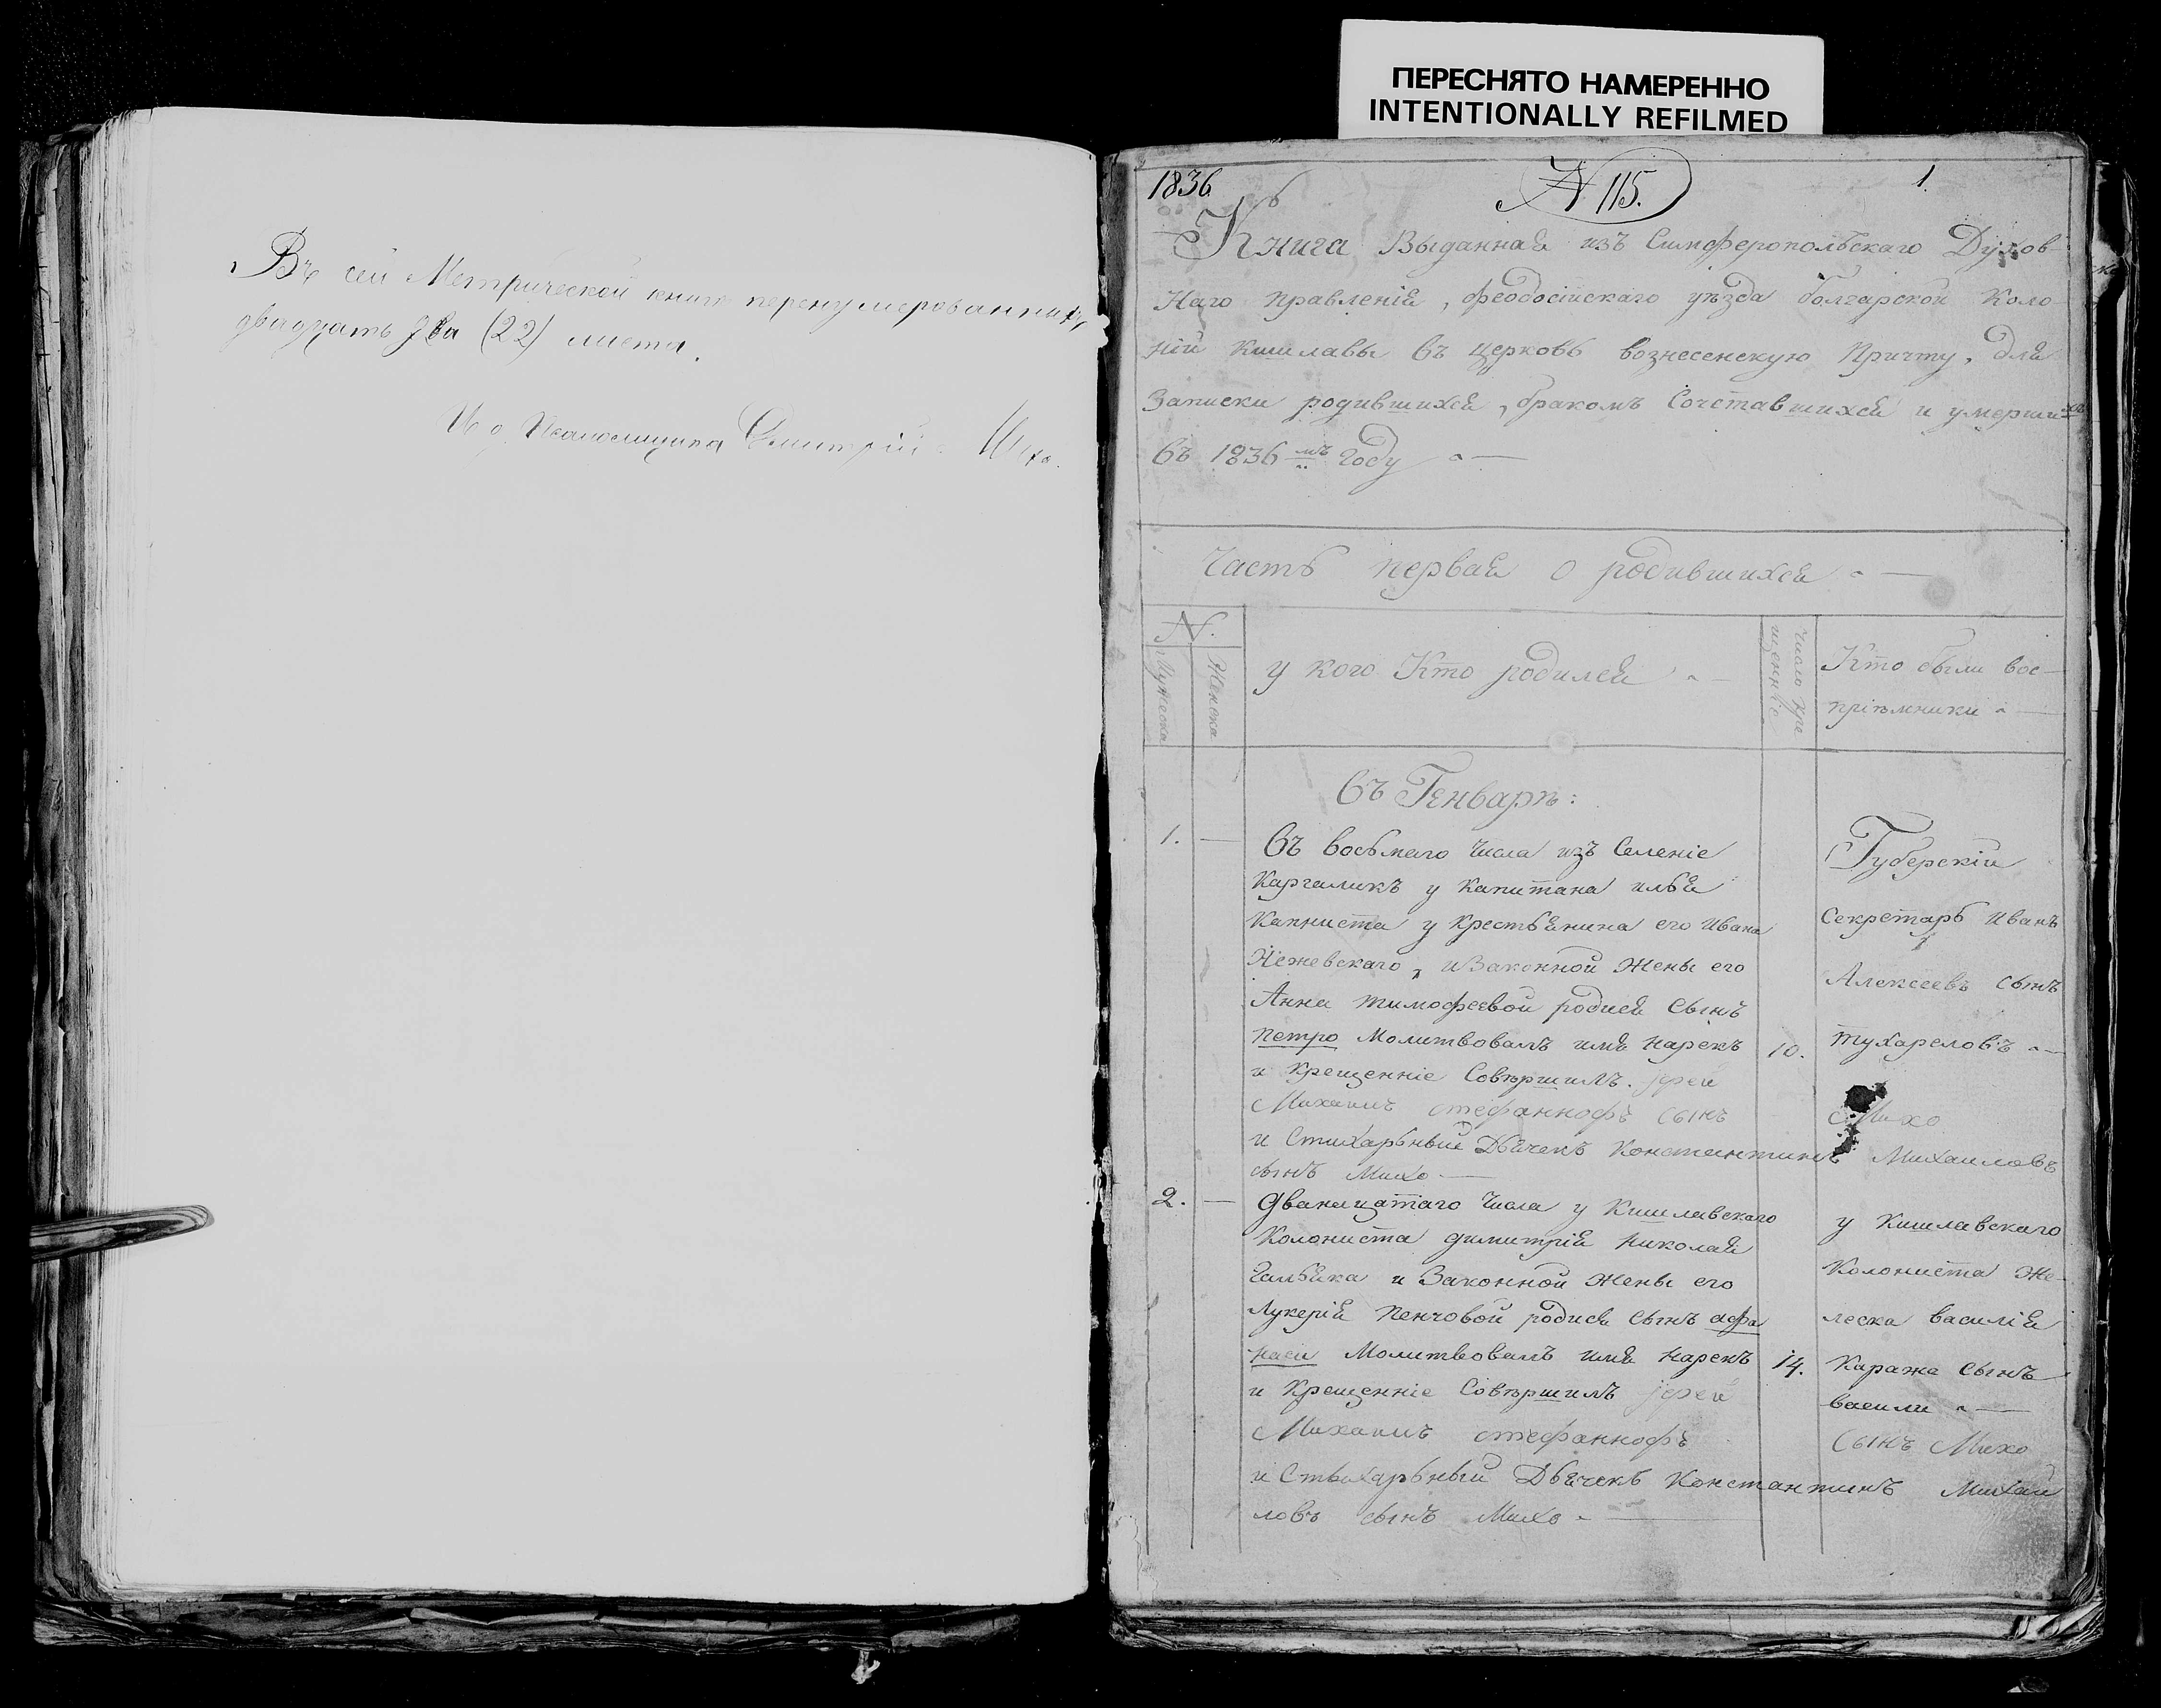 ПЕРЕСНЯТО НАМЕРЕННО
INTENTIONALLY REFILMED
Въ сей Метрической книги перенумерованныхъ
двадцать два (22) листа.
Дмитрій
1836
N 115.
1.
Книга Выданная изъ Симферопольскаго Духов
Наго правленія, феодосійскаго уѣзда болгарской Коло
ніи Кишлавы въ церковь вознесенскую Причту, для
Записки родившихся, бракомъ Сочетавшихся и умерши хъ
въ 1836 мъ году
Часть первая о родившихся
N.
Мужеска
Женска
у кого Кто родился
Число кре
щенніе
Кто были вос
пріѣмники
Въ Генварѣ:
1. —
Въ восьмаго числа изъ Селеніе
Каргаликъ у Капитана илья
Капниста у Крестьянина его Ивана
Нежевскаго, и Законной Жены его
Анна тимофеевой родися Сынъ
Петро Молитвовалъ имя нарекъ
и Крещенніе Совѣршилъ. іерей
Михаилъ стефаннофъ сынъ
и Стихарьный Дьячекъ Константинъ Михаиловъ
сынъ Михо
10.
Губерскій
Секретарь Иванъ
Алексеевъ сынъ
тухареловъ
Михо
2. —
Дванацатаго Числа у Кишлавскаго
Колониста димитрія николай
Чальика и Законной Жены его
Лукерія Пенчовой родися Сынъ афа
наси Молитвовалъ имя нарекъ
и Крещенніе Совѣршилъ іерей
Михаилъ стефаннофъ
и Стихарьный Дьячекъ Константинъ Михаи
ловъ сынъ Михо
14.
у Кишлавскаго
Колониста Же
леска василія
Караже сынъ
васили
Сынъ Михо